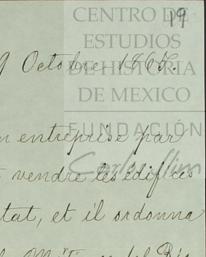 19
CENTRO DE
ESTUDIOS
DE HISTORIA
DE MEXICO
FUNDACIÓN
Carlos Slim
9 Octobre 1865.
entreprise par
vendre les édifices
tat, et il ordonna